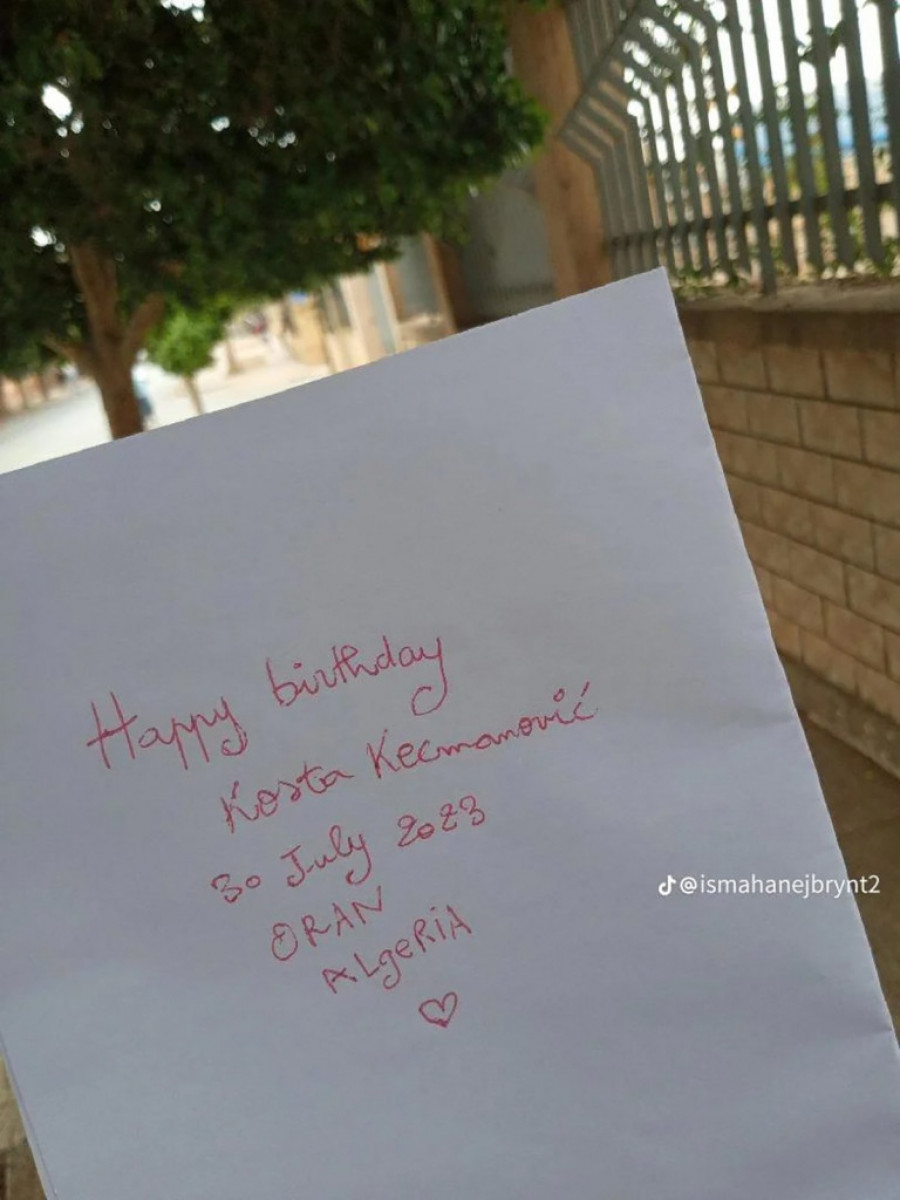 Happy birthday
Kosta Kecmanović
30 July 2023
ORAN
ALgeRiA
@ismahanejbrynt2